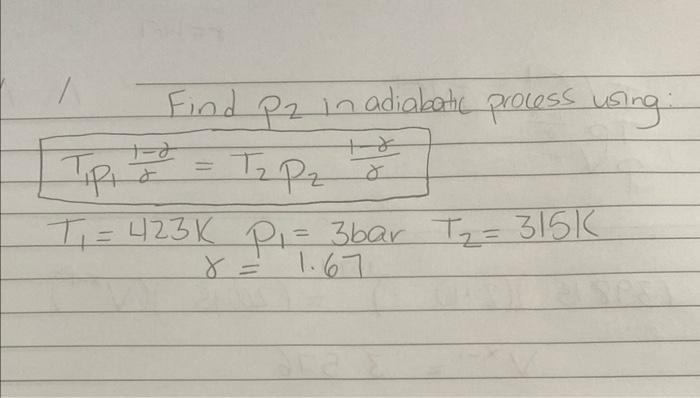 Find p2 in adiabatic process using:
T₁p₁^(1-γ)/γ = T₂ p₂^(1-γ)/γ
T₁ = 423K p₁ = 3bar T₂ = 315K
γ = 1.67